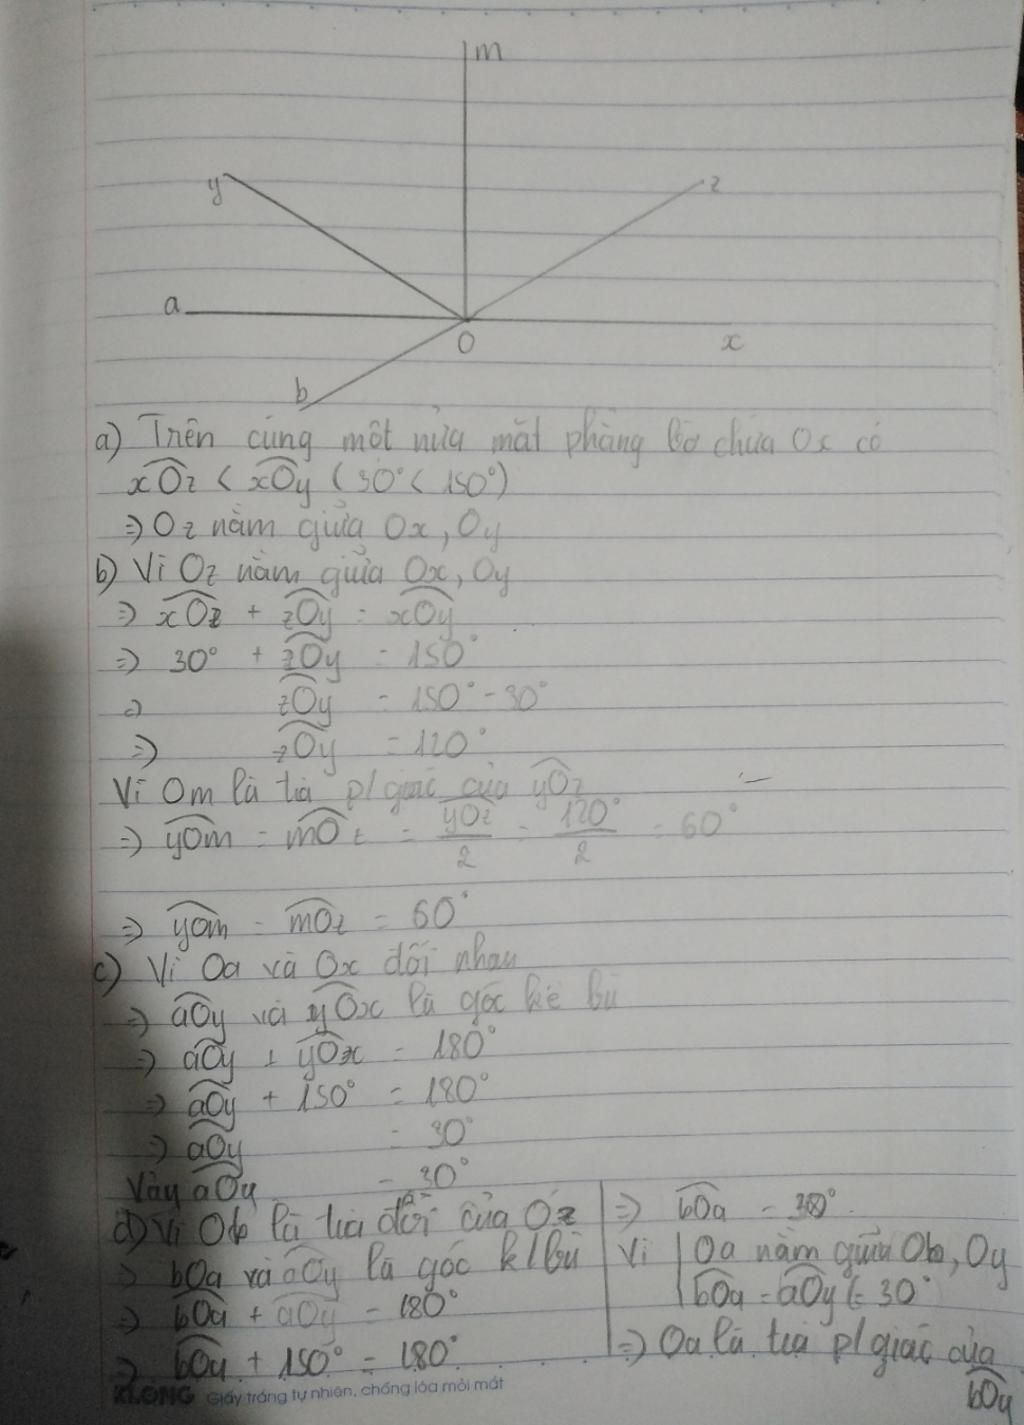 m
y
z
a
O
x
b
a) Trên cùng một nửa mặt phẳng bờ chứa Ox có
xOz < xOy (30° < 150°)
=> Oz nằm giữa Ox, Oy
b) Vì Oz nằm giữa Ox, Oy
=> xOz + zOy = xOy
=> 30° + zOy = 150°
=> zOy = 150° - 30°
=> zOy = 120°
Vì Om là tia p/giác của yOz
=> yOm = mOz = yOz/2 = 120°/2 = 60°
=> yOm = mOz = 60°
c) Vì Oa và Ox đối nhau
=> aOy và yOx là góc kề bù
=> aOy + yOx = 180°
=> aOy + 150° = 180°
=> aOy = 30°
Vậy aOy = 30°
d) Vì Ob là tia đối của Oz
=> bOa và aOy là góc k/bù
=> bOa + aOy = 180°
=> bOa + 150° = 180°
=> bOa = 30°
Vì Oa nằm giữa Ob, Oy
bOa = aOy (= 30°
=> Oa là tia p/giác của
bOy
KLONG Giấy trắng tự nhiên, chống lóa mỏi mắt